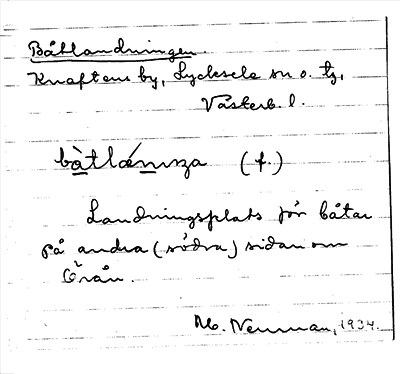 Båtlandningen
Knaftens by, Lycksele sn o. tg,
Västerb. l.
(f.)
Landningsplats för båtar
på andra (södra) sidan om
Örån.
M. Neuman, 1934.